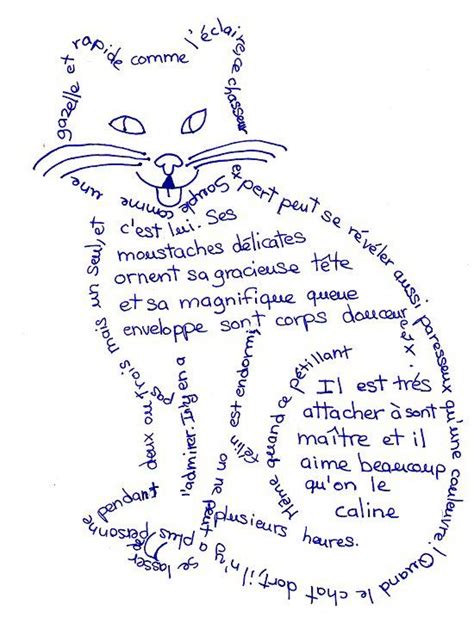 Souple comme une
gazelle et rapide comme l'éclaire, ce chasseur
expert peut se révéler aussi paresseux qu'une couleuvre! Quand le chat dort, il n'y a plus personne
Même quand ce pétillant
félin est endormi,
on ne peut
se lasser
pendant
plusieurs heures.
l'admirer. Il n'y en a
pas
deux ou trois mais un seul, et
c'est lui. Ses
moustaches délicates
ornent sa gracieuse tête
et sa magnifique queue
enveloppe sont corps douceureux.
Il est trés
attacher à sont
maître et il
aime beaucoup
qu'on le
caline